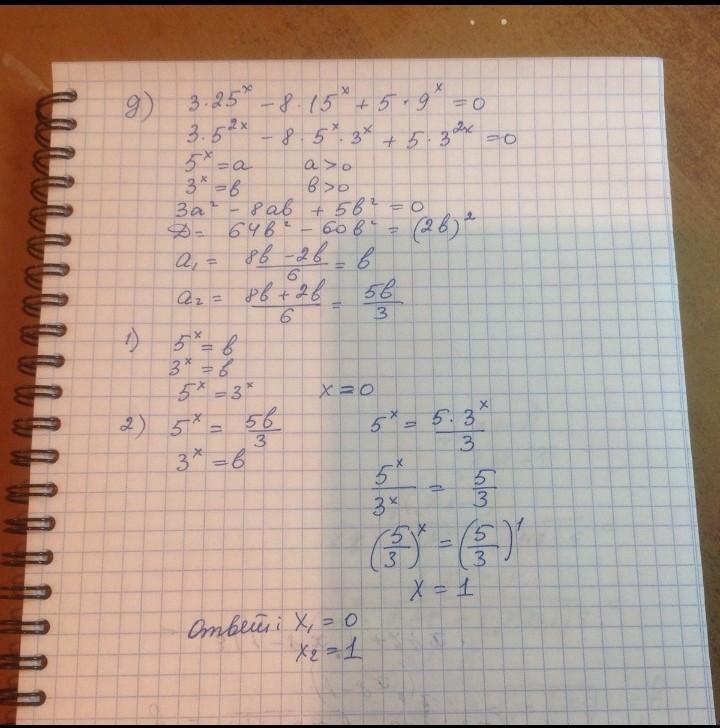 д) 3·25^x − 8·15^x + 5·9^x = 0
3·5^{2x} − 8·5^x·3^x + 5·3^{2x} = 0
5^x = a a>0
3^x = в в>0
3a² − 8aв + 5в² = 0
D = 64в² − 60в² = (2в)²
a₁ = (8в − 2в)/6 = в
a₂ = (8в + 2в)/6 = 5в/3
1) 5^x = в
3^x = в
5^x = 3^x x = 0
2) 5^x = 5в/3 5^x = (5·3^x)/3
3^x = в
5^x/3^x = 5/3
(5/3)^x = (5/3)^1
x = 1
Ответ: x₁ = 0
x₂ = 1